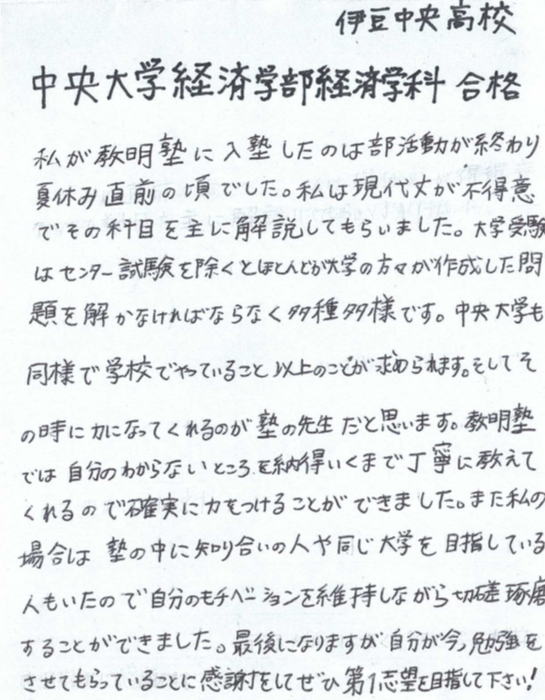 伊豆中央高校
中央大学経済学部経済学科 合格
私が教明塾に入塾したのは部活動が終わり
夏休み直前の頃でした。私は現代文が不得意
でその科目を主に解説してもらいました。大学受験
はセンター試験を除くとほとんどが大学の方々が作成した問
題を解かなければならなく多種多様です。中央大学も
同様で学校でやっていること以上のことが求められます。そしてそ
の時に力になってくれるのが塾の先生だと思います。教明塾
では自分のわからないところを納得いくまで丁寧に教えて
くれるので確実に力をつけることができました。また私の
場合は塾の中に知り合いの人や同じ大学を目指している
人もいたので自分のモチベーションを維持しながら切磋琢磨
することができました。最後になりますが自分が今、勉強を
させてもらっていることに感謝をしてぜひ第1志望を目指して下さい!